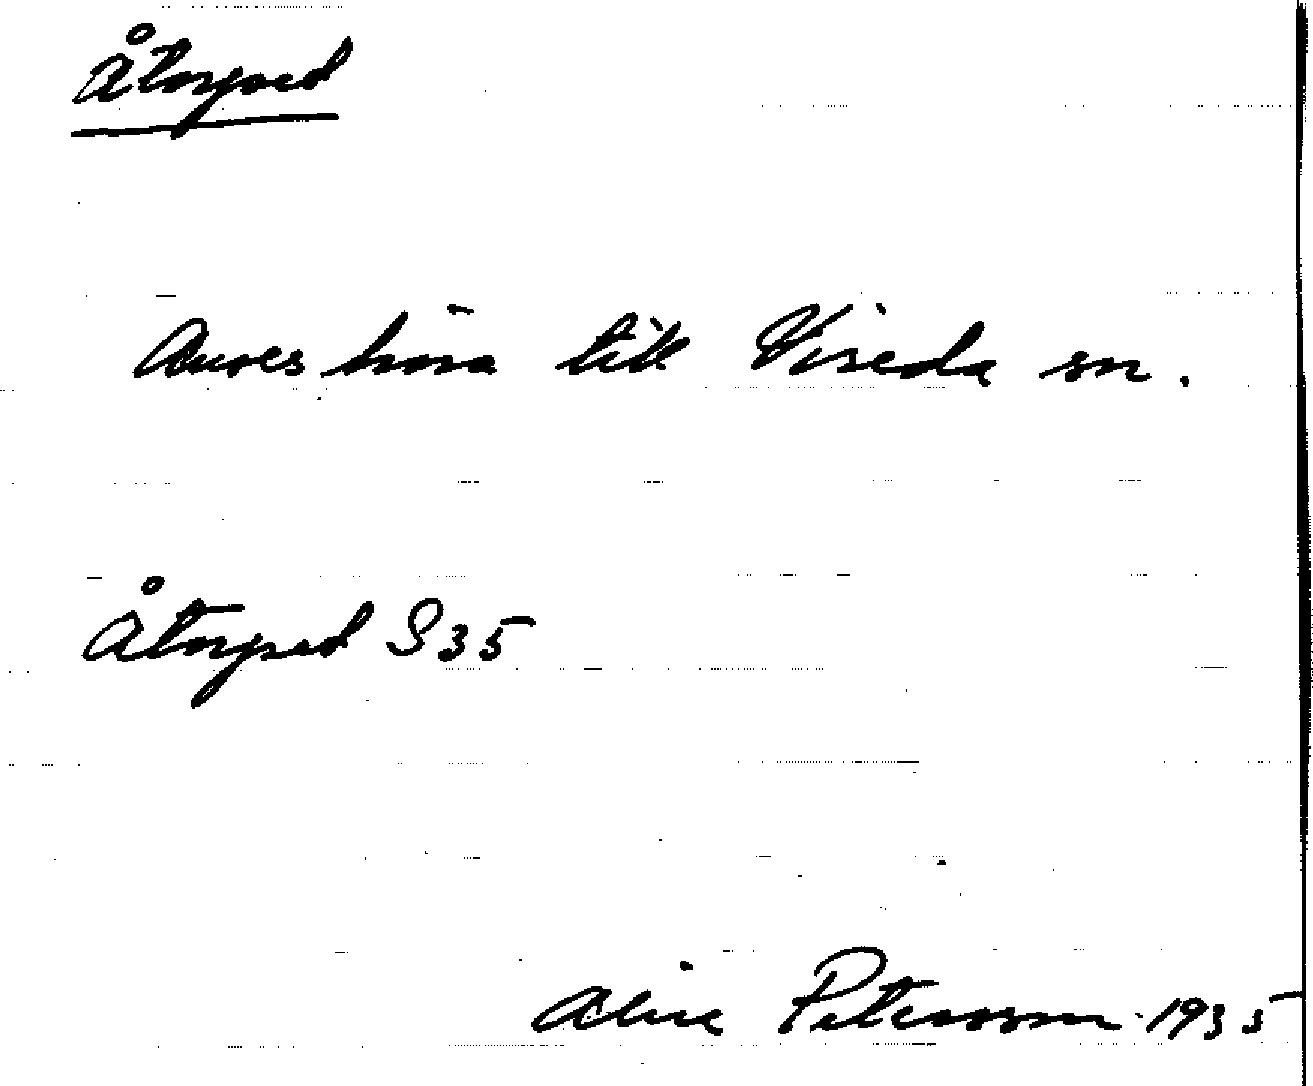 Åtorped
Anses höra till Vireda sn.
Åtorped S35
Alice Petersson 1935